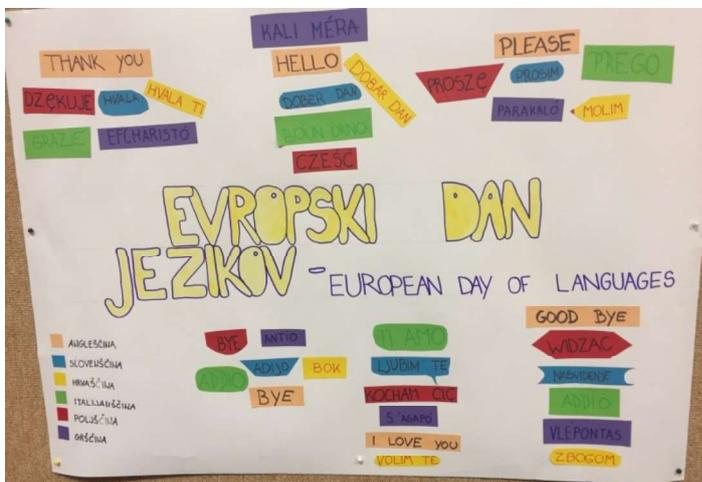 THANK YOU
DZĘKUJE
HVALA
HVALA TI
GRAZIE
EFCHARISTÓ
KALI MÉRA
HELLO
DOBER DAN
DOBAR DAN
BOUN URNO
CZEŚĆ
PLEASE
PROSZĘ
PROSIM
PREGO
PARAKALÓ
MOLIM
EVROPSKI DAN
JEZIKOV - EUROPEAN DAY OF LANGUAGES
ANGLEŠČINA
SLOVENŠČINA
HRVAŠČINA
ITALIJANŠČINA
POLJŠČINA
GRŠČINA
BYE
ANTIO
ADIJO
BOK
ADDIO
BYE
TI AMO
LJUBIM TE
KOCHAM CIĘ
S'AGAPÓ
I LOVE YOU
VOLIM TE
GOOD BYE
WIDZAC
NASVIDENJE
ADDIO
VLEPONTAS
ZBOGOM